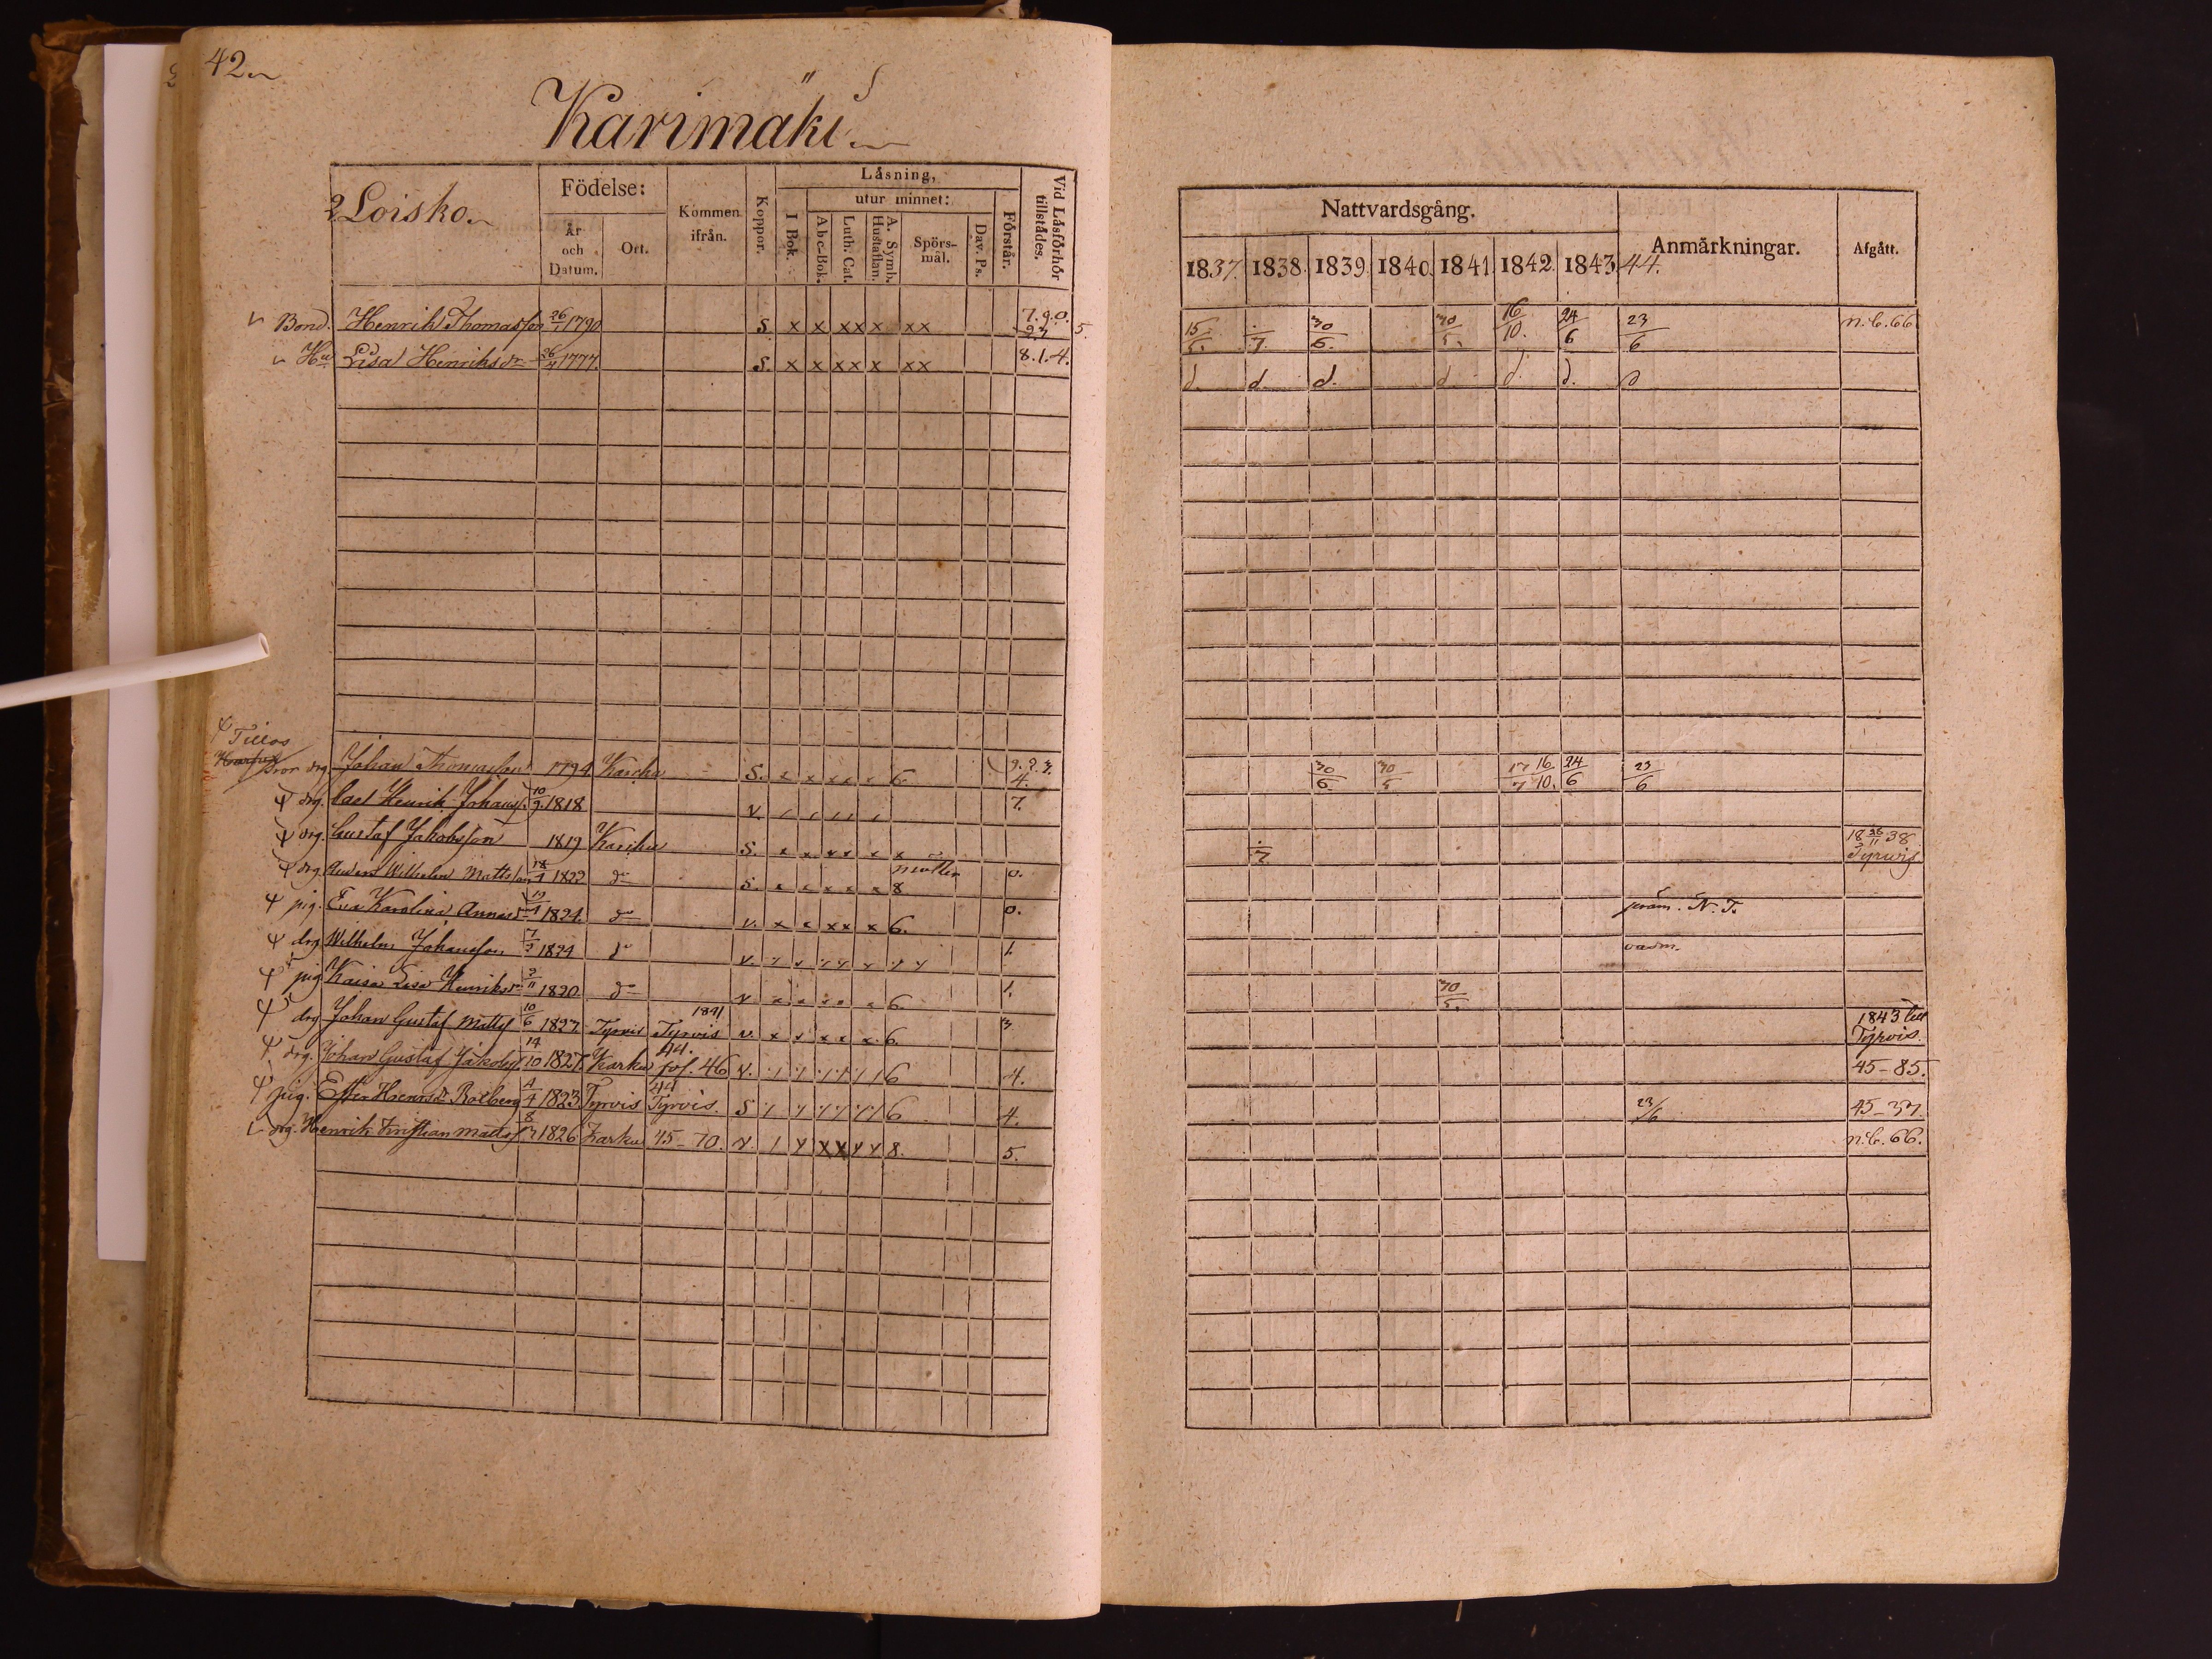 42
Karimäki
2 Loisko
Födelse:
År och Datum.
Ort.
Kommen ifrån.
Koppor.
Låsning,
I Bok.
utur minnet:
Abc-Bok.
Luth. Cat.
A. Symb. Hustaflan.
Spörs-mål.
Dav. Ps.
Förstår.
Vid Låsförhör tillstådes.
Bond. Henrik Thomasson 26/1 1790 S. x x x x x x x 7. 9. 0. 2.3 5
Hu Lisa Henriksdr 26/4 1777. S. x x x x x x x 8. 1. 4.
Tillos
Bror drg Johan Thomasson 1794 Karcku S. x x x x x 6. 9. 2. 3. 4.
drg. Carl Henrik Johans. 10/9 1818 v. 7.
drg. Gustaf Jakobsson 1819 Karcku S. x x x x x x
drg. Anders Wilhelm Mattsson 1822 do S. x x x x x 8 0.
pig. Eva Karolina Annasdr 1824. do v. x x x x x 6. 0.
drg Wilhelm Johansson 7/2 1824 do v. 1.
pig Kaisa Lisa Henriksdr 2/11 1820 do v. x x x x x 6. 1.
drg Johan Gustaf Matts 10/6 1827 Tyrvis 1841 Tyrvis v. x x x x x 6. 3
drg. Johan Gustaf Jakobs 14/10 1827. Karku 44. fol. 46 v. 6 4.
pig. Ester Henrsdr Rolberg 4/4 1823. Tyrvis 44 Tyrvis. S 6 4.
drg. Henrik Kristian Matts 8/3 1826 Karku 45-70. v. 8. 5.
Nattvardsgång.
Anmärkningar.
Afgått.
1837. 1838. 1839. 1840. 1841. 1842. 1843. 44.
15/5. 7. 30/6. 30/5. 16/10. 24/6 23/6 n.b. 66
d. d. d. d. d. d. d
30/6. 30/5 17/7 16/10. 24/6 23/6
7 18 26/11 38 Tyrwis
präm. N. T.
30/5.
1843 till Tyrvis.
45-85.
23/6 45-37.
n.b. 66.